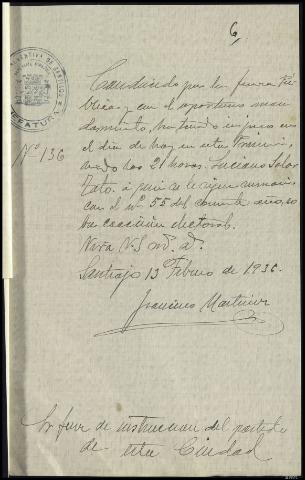 6
Nº 136
Conducido por la fuerza Pú-
blica y con el oportuno man-
damiento, ha tenido ingreso en
el día de hoy en esta Prisión,
siendo las 21 horas, Luciano
a quien se le sigue sumario
con el nº 55 del corriente año, so-
bre coacción electoral.
Viva V.S. m. a.
Santiago 13 Febrero de 1936.
Francisco Martinez
Sr Juez de instruccion del partido
de esta Ciudad